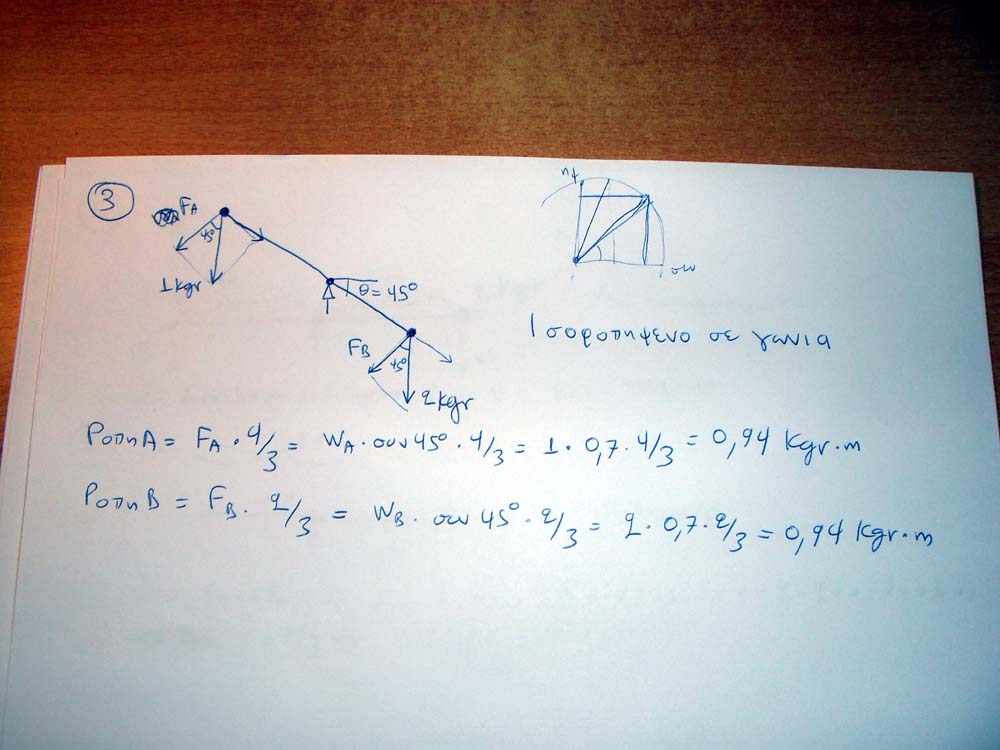 3
FA
45°
1kgr
θ = 45°
FB
45°
2kgr
ημ
συν
Ισοροπημενο σε γωνια
Ροπη A = FA · 4/3 = WA · συν 45° · 4/3 = 1 · 0,7 · 4/3 = 0,94 Kgr·m
Ροπη B = FB · 2/3 = WB · συν 45° · 2/3 = 2 · 0,7 · 2/3 = 0,94 Kgr·m